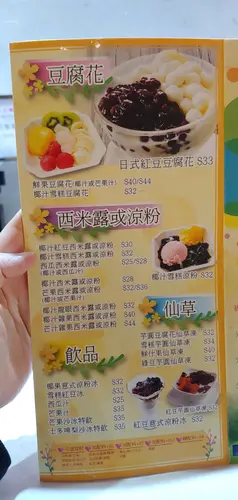 豆腐花
日式紅豆豆腐花 $33
鮮果豆腐花(椰汁或芒果汁) $40/$44
椰汁雪糕豆腐花 $32
西米露或涼粉
椰汁紅豆西米露或涼粉 $30
椰汁雪糕西米露或涼粉 $32
西瓜西米露或涼粉 $25/$28
(椰汁或西瓜汁)
椰汁西米露或涼粉 $28
芒果西米露或涼粉 $35/$38
(椰汁或芒果汁)
椰汁龍眼西米露或涼粉 $32
椰汁雜果西米露或涼粉 $40
芒汁雜果西米露或涼粉 $44
椰汁雪糕涼粉 $32
仙草
芋圓豆腐花仙草凍 $32
雪糕芋圓仙草凍 $34
鮮什果仙草凍 $40
綠豆芋圓仙草凍
紅豆芋圓仙草凍 $32
飲品
椰果意式涼粉冰 $32
雪糕紅豆冰 $32
西瓜汁
芒果汁
芒果沙冰特飲 $35
士多啤梨沙冰特飲 $35
紅豆意式涼粉冰 $32